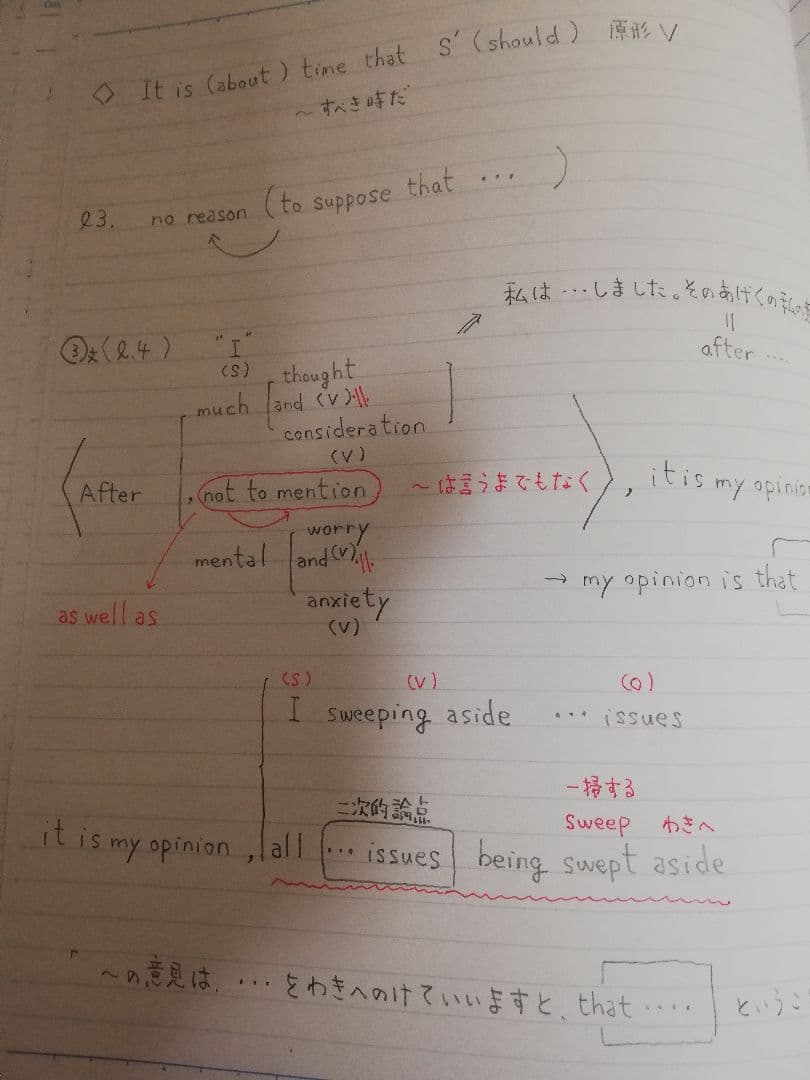 ◇ It is (about) time that S′ (should) 原形 V
～すべき時だ
l3. no reason (to suppose that ･･･ )
私は ･･･しました。そのあげくの私の
||
after ････
③文(l.4) "I"
(S)
thought
much and (V)
consideration
(V)
After , not to mention ～は言うまでもなく , it is my opinion
worry
mental and (V)
anxiety
(V)
as well as
→ my opinion is that
(S) (V) (O)
I sweeping aside ･･･ issues
一掃する
二次的論点 sweep わきへ
it is my opinion , all ･･･ issues being swept aside
「～の意見は、･･･をわきへのけていいますと、that ････ という